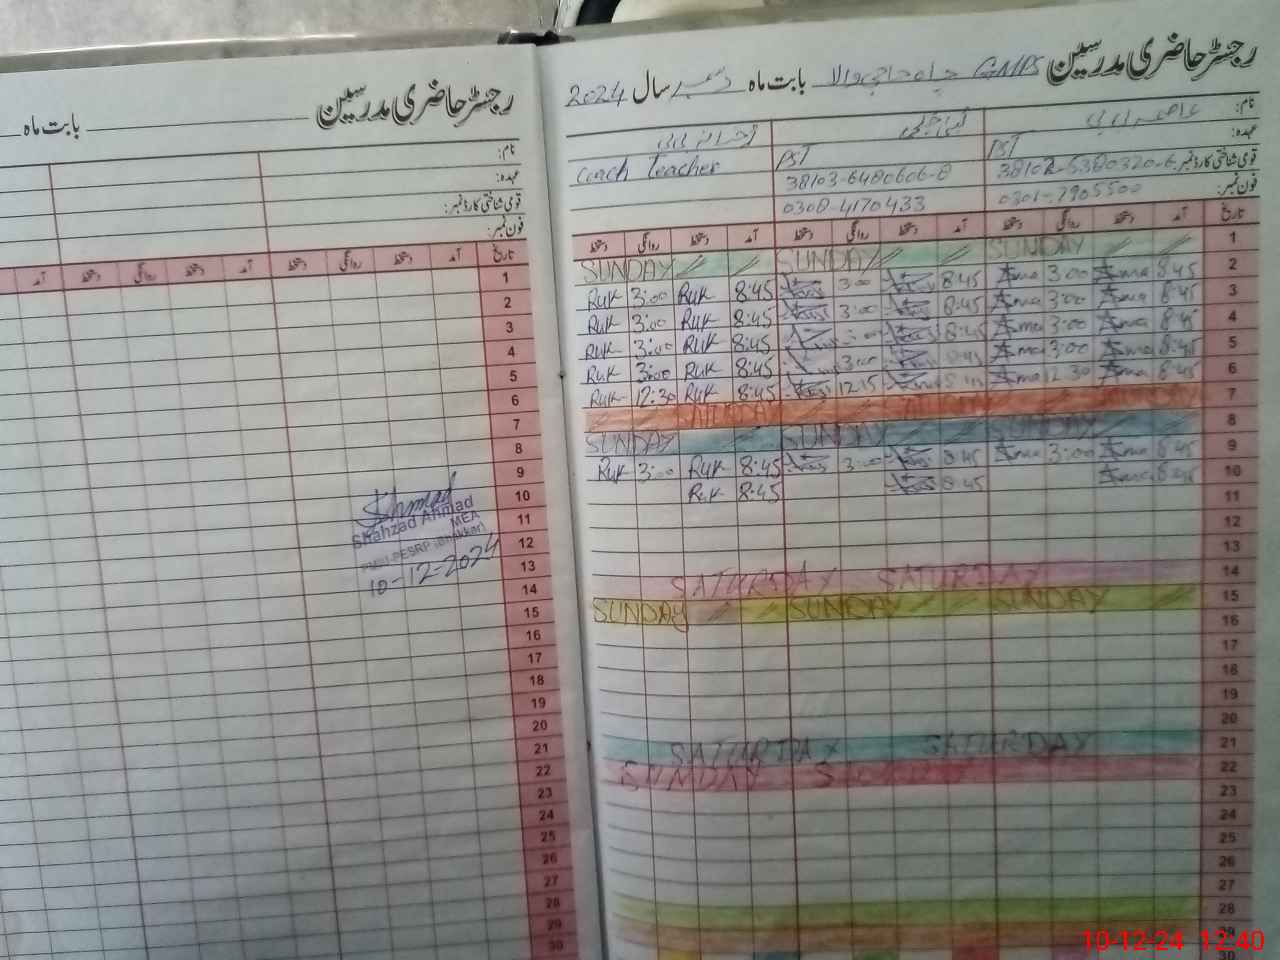 رجسٹر حاضری مدرسین
بابت ماہ
نام:
عہدہ:
قومی شناختی کارڈ نمبر:
فون نمبر:
تاریخ آمد دستخط روانگی دستخط آمد دستخط روانگی دستخط آمد
1
2
3
4
5
6
7
8
9
10
11
12
13
14
15
16
17
18
19
20
21
22
23
24
25
26
27
28
29
30
Shahzad Ahmad
MEA
10-12-2024
رجسٹر حاضری مدرسین GMPS بابت ماہ دسمبر سال 2024
نام:
عہدہ: PST PST Coach Teacher
قومی شناختی کارڈ نمبر 38103-6480606-8
فون نمبر: 0301-7905500 0308-4170433
تاریخ آمد دستخط روانگی دستخط آمد دستخط روانگی دستخط آمد دستخط روانگی دستخط
1 SUNDAY SUNDAY SUNDAY
2 8:45 Asma 3:00 Asma 8:45 3:00 8:45 Ruk 3:00 Ruk
3 8:45 Asma 3:00 Asma 8:45 3:00 8:45 Ruk 3:00 Ruk
4 8:45 Asma 3:00 Asma 8:45 8:45 Ruk 3:00 Ruk
5 8:45 Asma 3:00 Asma 8:45 3:00 8:45 Ruk 3:00 Ruk
6 8:45 Asma 12:30 Asma 12:15 8:45 Ruk 12:30 Ruk
7 SATURDAY SATURDAY SATURDAY
8 SUNDAY SUNDAY SUNDAY
9 8:45 Asma 3:00 Asma 8:45 3:00 8:45 Ruk 3:00 Ruk
10 8:45 Asma 8:45 8:45 Ruk
11
12
13
14 SATURDAY SATURDAY
15 SUNDAY SUNDAY SUNDAY
16
17
18
19
20
21 SATURDAY SATURDAY
22 SUNDAY
23
24
25
26
27
28
29
30
10-12-24 12:40